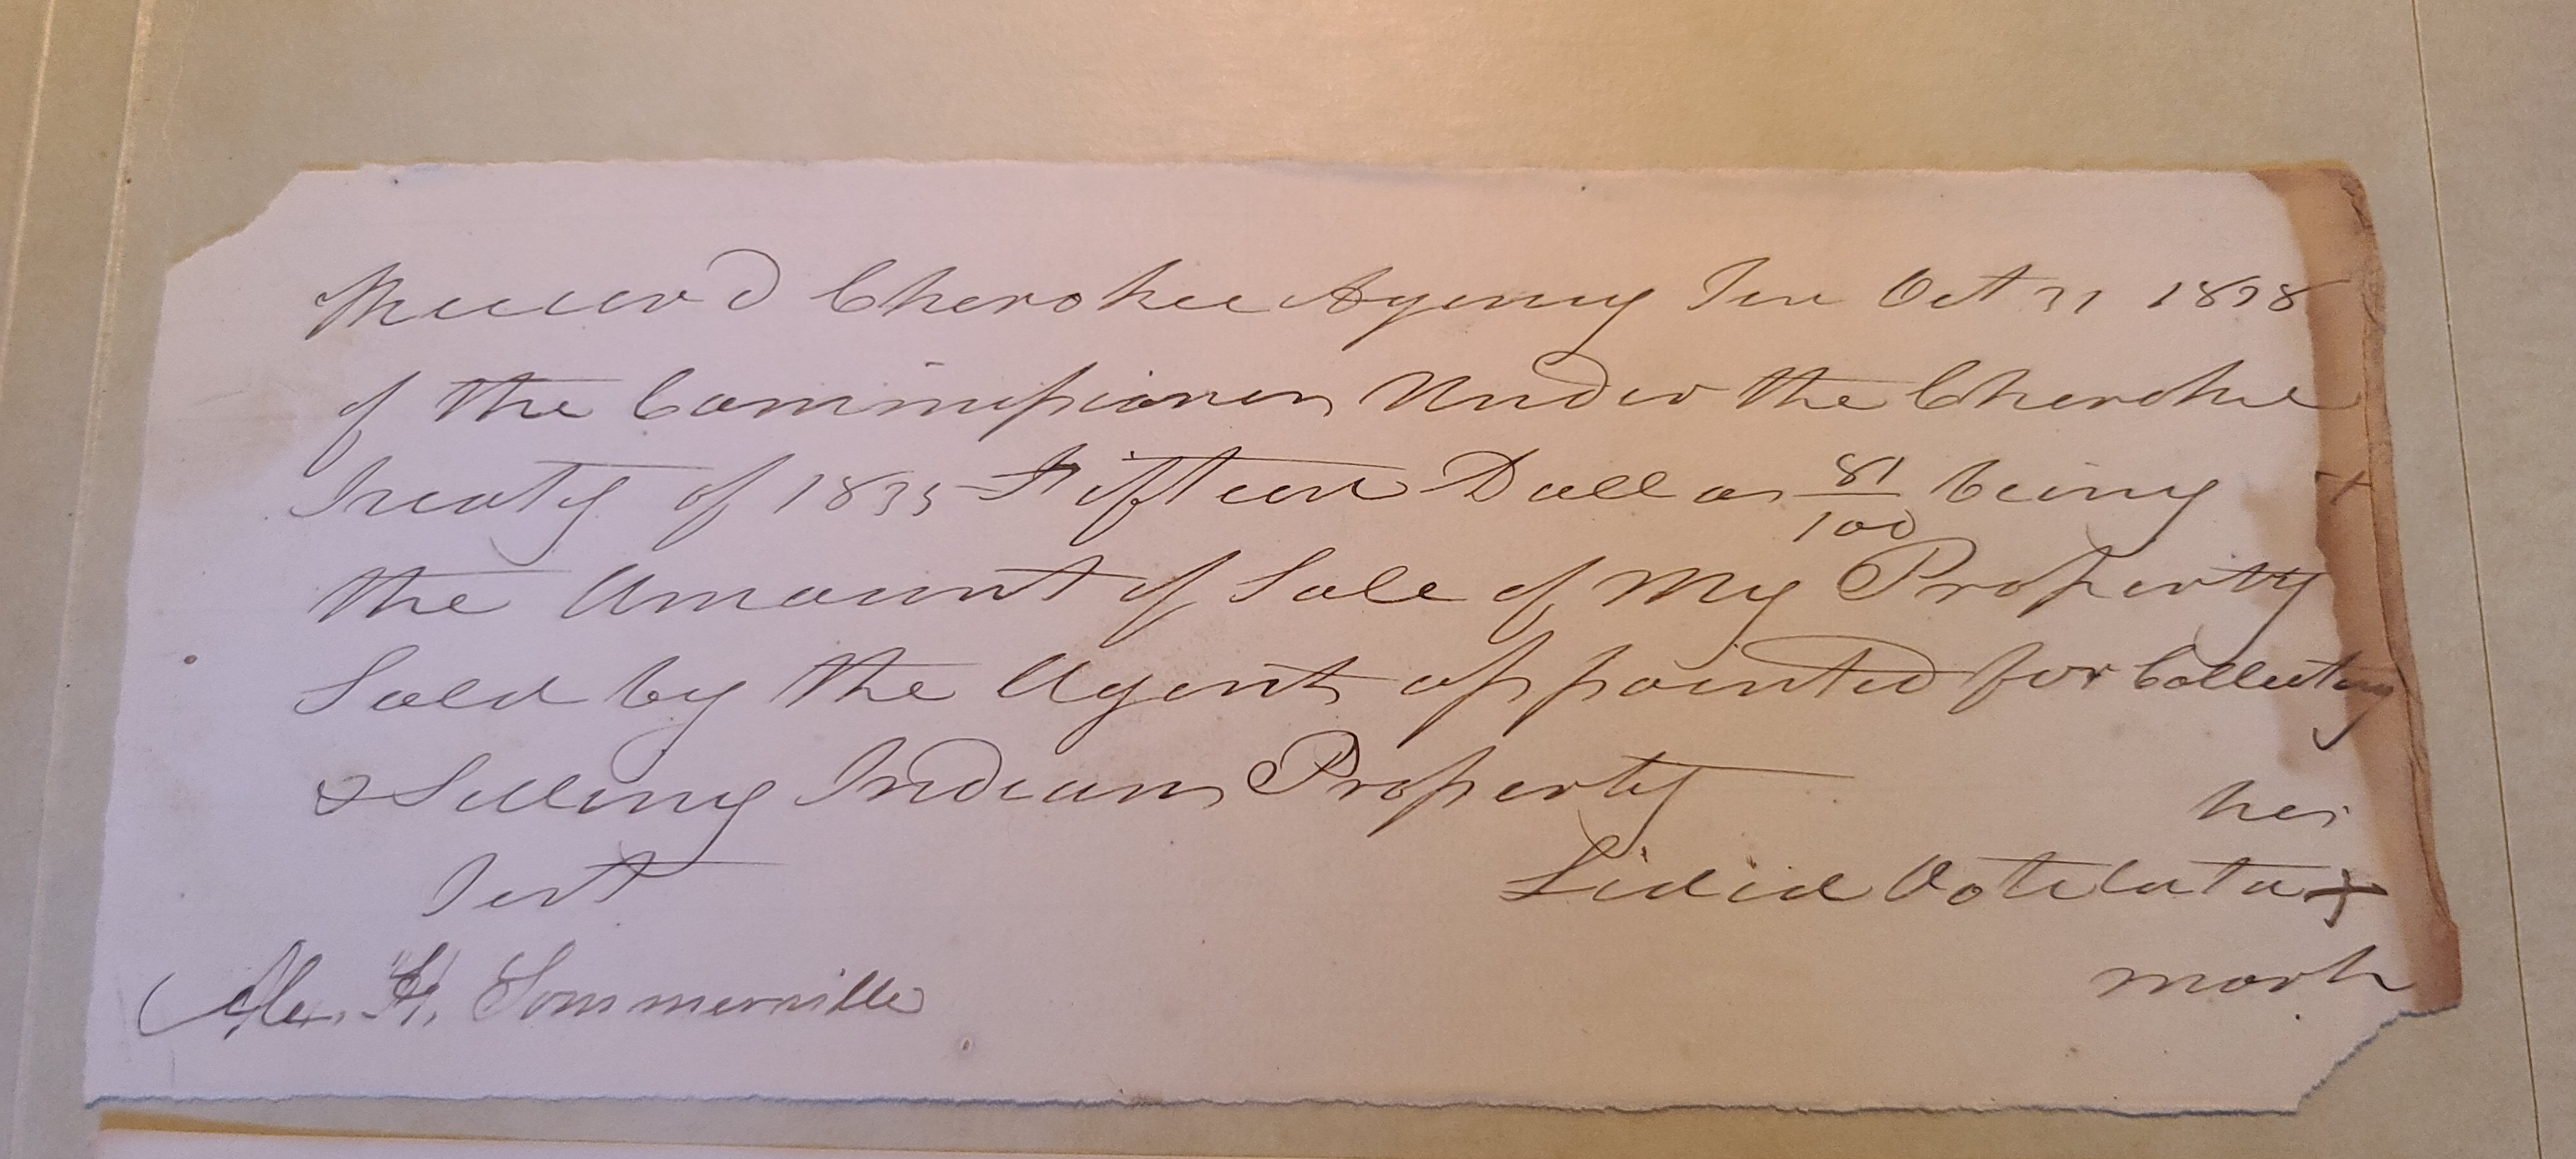 Received Cherokee Agency Ten Oct 31 1838
of the Commissioners Under the Cherokee
Treaty of 1835 Fifteen Dollars 81/100 being
the Amount of Sale of My Property
Sold by the Agents appointed for Collecting
& Selling Indians Property
her
Test
mark
Alex. H. Sommerville